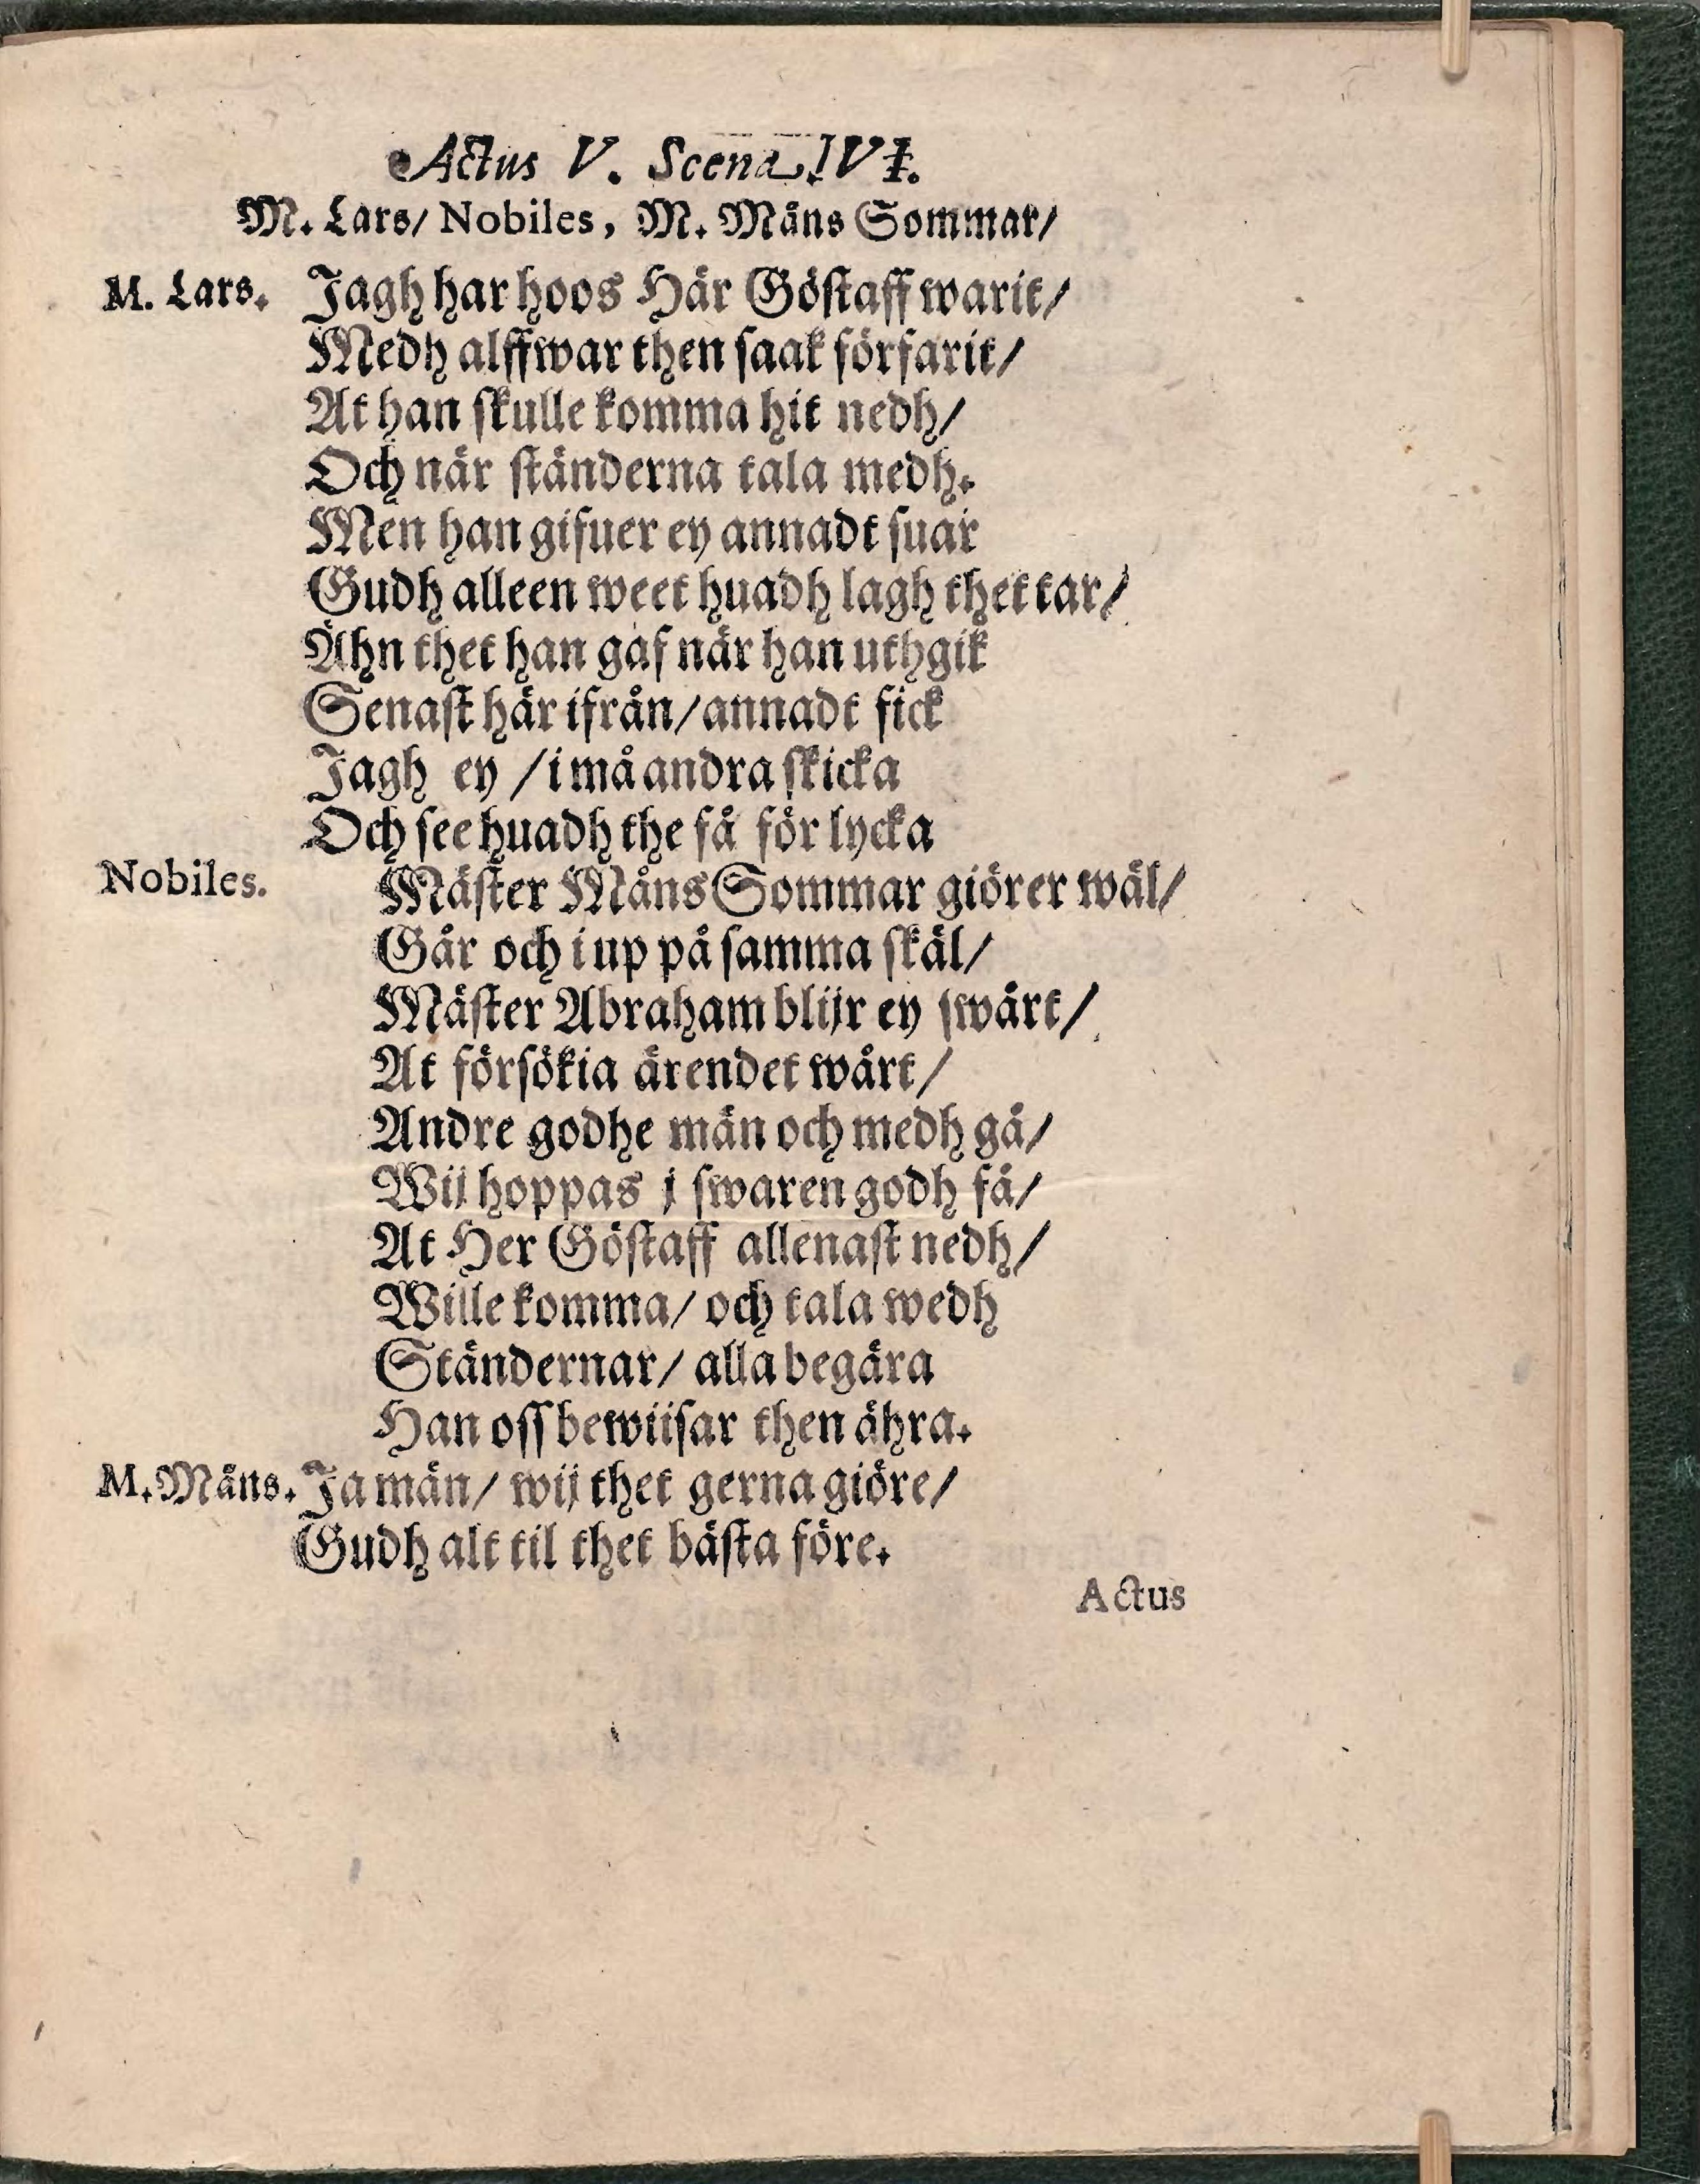 Actus V. Scena IVI.
M. Lars/ Nobiles, M. Måns Sommar/
M. Lars. Jagh har hoos Här Göstaff warit/
Medh alffwar then saak förfarit/
At han skulle komma hit nedh/
Och når ständerna tala medh.
Men han gifuer ey annadt suar
Gudh alleen weet huadh lagh thet tar/
Ähn thet han gaf når han uthgik
Senast hår ifrån/ annadt fick
Jagh ey / i må andra skicka
Och see huadh the få för lycka
Nobiles. Mäster Måns Sommar giörer wäl/
Går och i up på samma skäl/
Mäster Abraham blijr ey swårt/
At försökia ärendet wårt/
Andre godhe män och medh gå/
Wij hoppas j swaren godh få/
At Her Göstaff allenast nedh/
Wille komma/ och tala wedh
Ständernar/ alla begära
Han oss bewiisar then ähra.
M. Måns. Ja män/ wij thet gerna giöre/
Gudh alt til thet bästa före.
Actus